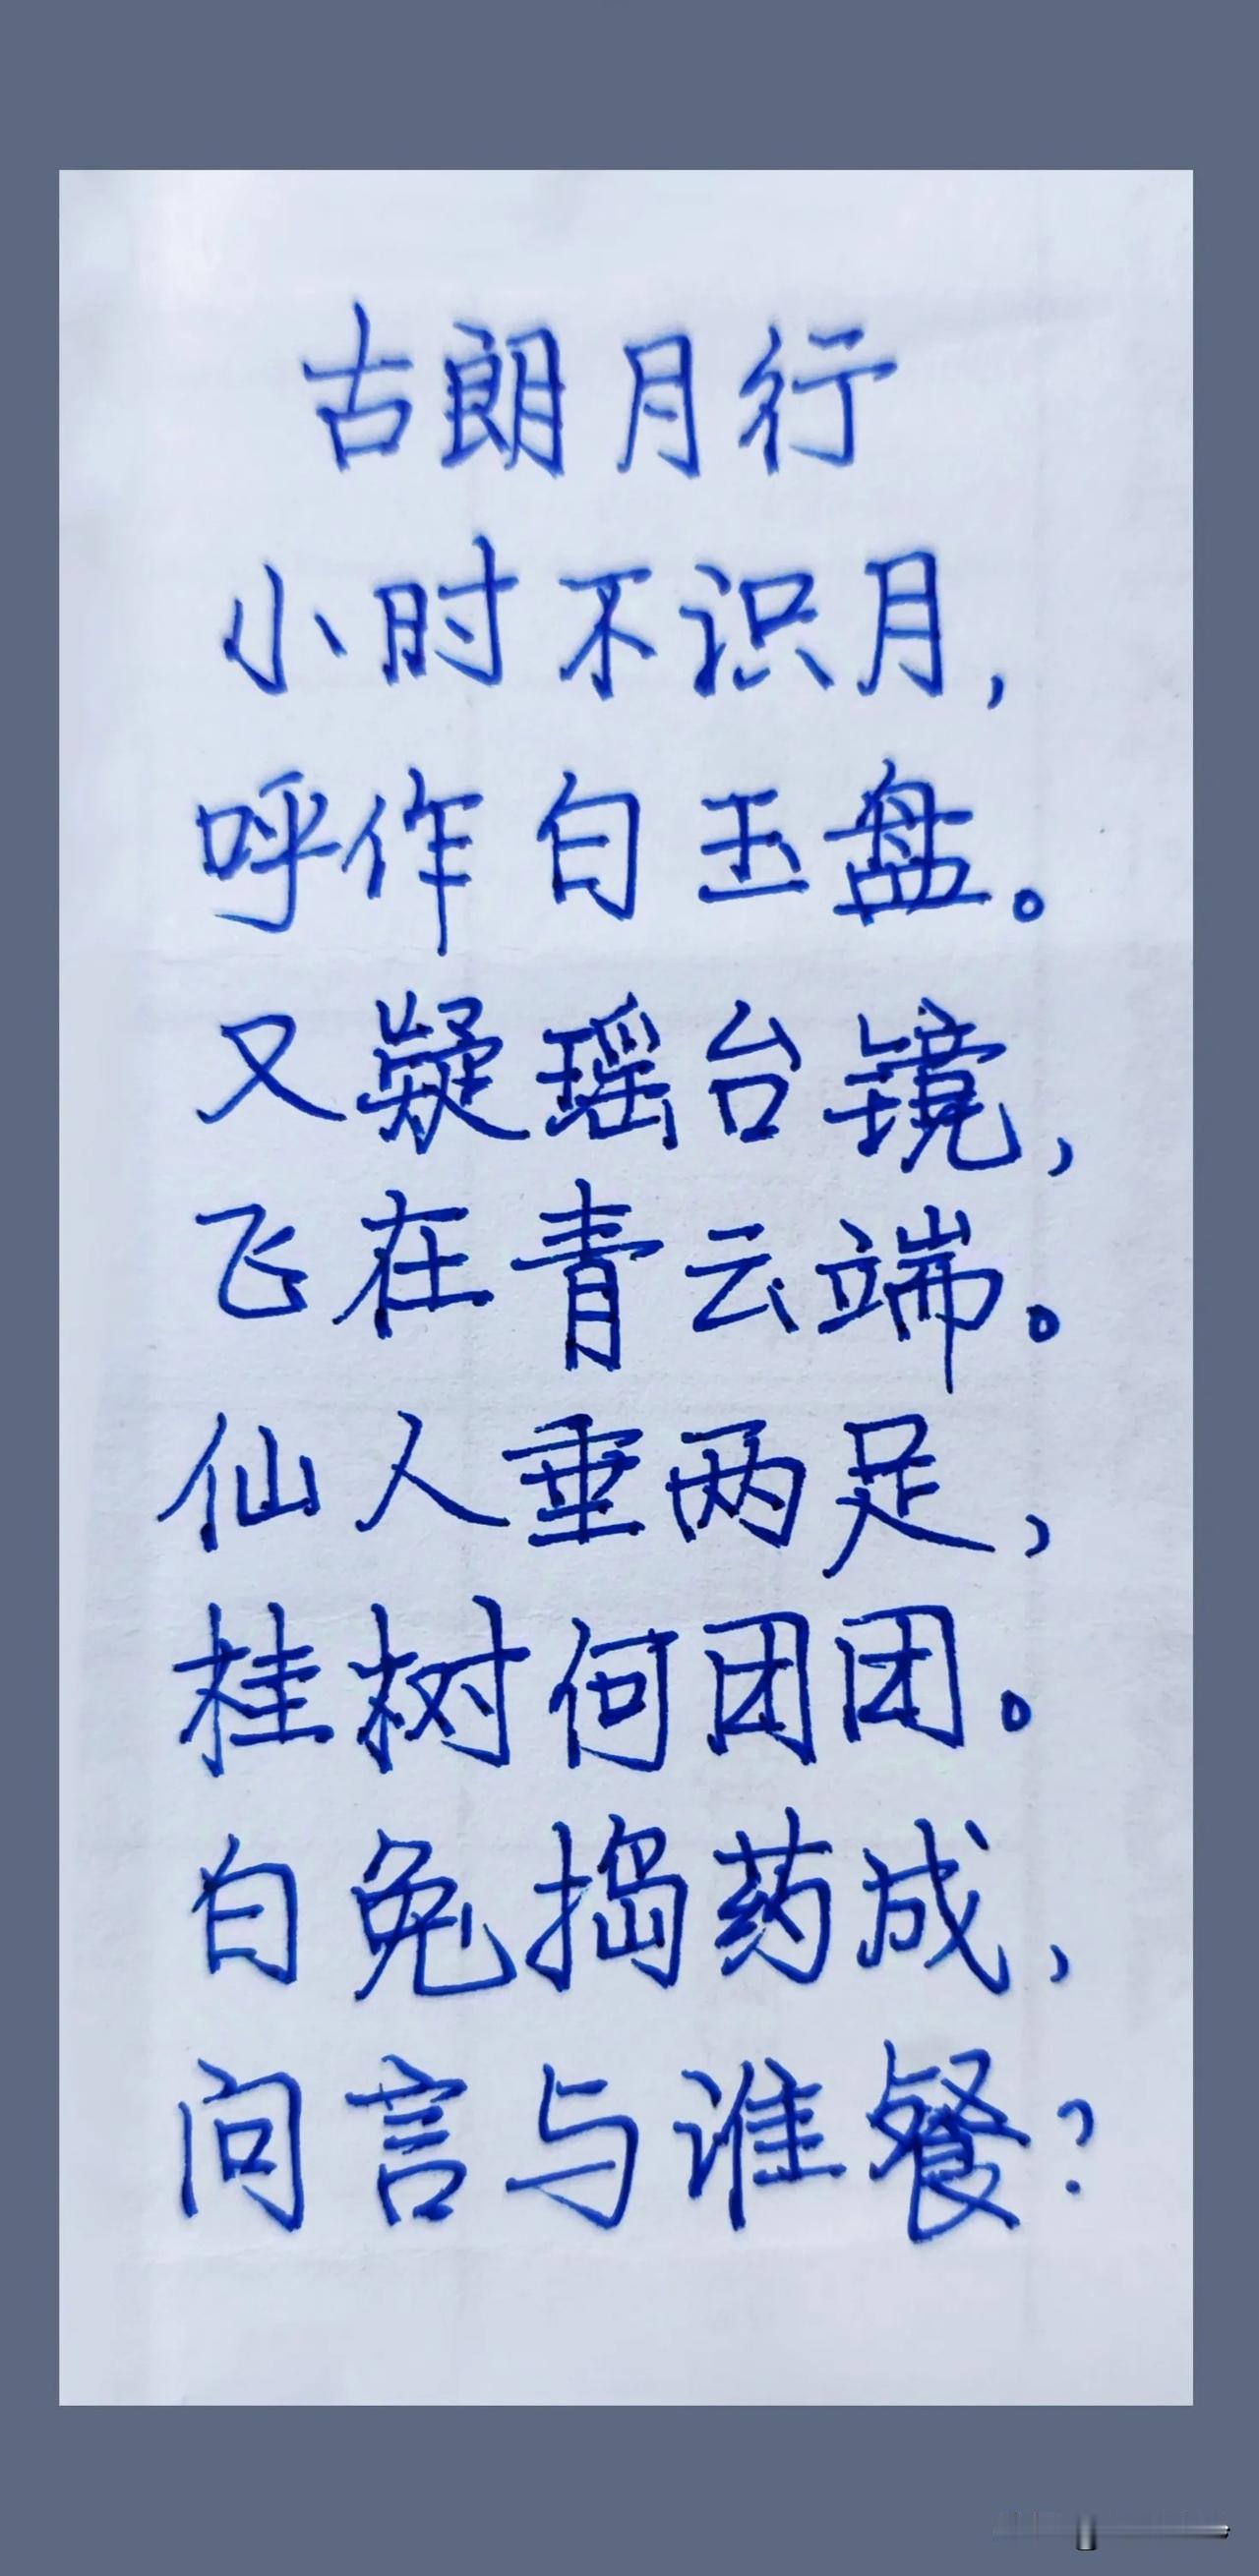 古朗月行
小时不识月，
呼作白玉盘。
又疑瑶台镜，
飞在青云端。
仙人垂两足，
桂树何团团。
白兔捣药成，
问言与谁餐？